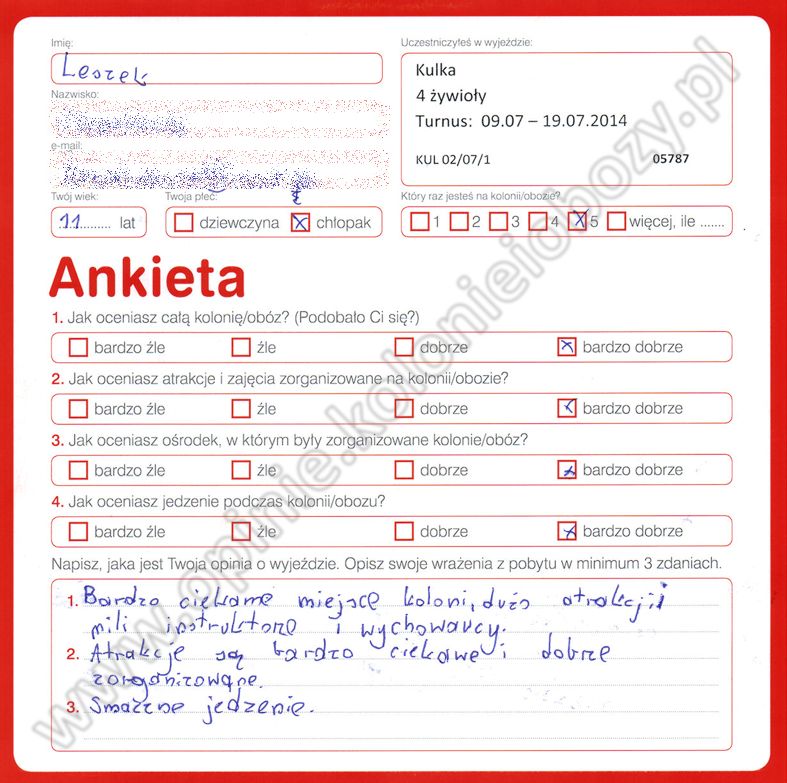 Imię:
Leszek
Uczestniczyłeś w wyjeździe:
Kulka
4 żywioły
Turnus: 09.07 – 19.07.2014
KUL 02/07/1 05787
Nazwisko:
e-mail:
Twój wiek:
11 lat
Twoja płeć:
dziewczyna chłopak
Który raz jesteś na kolonii/obozie?
1 2 3 4 5 więcej, ile .......
Ankieta
1. Jak oceniasz całą kolonię/obóz? (Podobało Ci się?)
bardzo źle źle dobrze bardzo dobrze
2. Jak oceniasz atrakcje i zajęcia zorganizowane na kolonii/obozie?
bardzo źle źle dobrze bardzo dobrze
3. Jak oceniasz ośrodek, w którym były zorganizowane kolonie/obóz?
bardzo źle źle dobrze bardzo dobrze
4. Jak oceniasz jedzenie podczas kolonii/obozu?
bardzo źle źle dobrze bardzo dobrze
Napisz, jaka jest Twoja opinia o wyjeździe. Opisz swoje wrażenia z pobytu w minimum 3 zdaniach.
1. Bardzo ciekame miejsce koloni, dużo atrakcji i
mili instruktorze i wychowawcy.
2. Atrakcje są bardzo ciekawe i dobrze
zorganizowane.
3. Smaczne jedzenie.
www.opinie.kolonieiobozy.pl